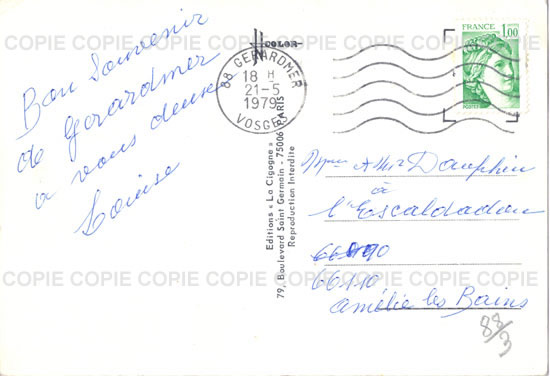 Bon Souvenir
de Gerardmer
a vous deux
Louise
COLOR
Editions « La Cigogne »
79, Boulevard Saint Germain - 75006 PARIS
Reproduction Interdite
88 GERARDMER
18 H
21-5
1979
VOSGES
FRANCE
1,00
POSTES
Mme & Mr Dauphin
à
l'Escaldadou
66110
Amélie les Bains
88/3
COPIE COPIE COPIE COPIE COPIE COPIE COPIE COPIE
COPIE COPIE COPIE COPIE COPIE COPIE COPIE COPIE
COPIE COPIE COPIE COPIE COPIE COPIE COPIE COPIE